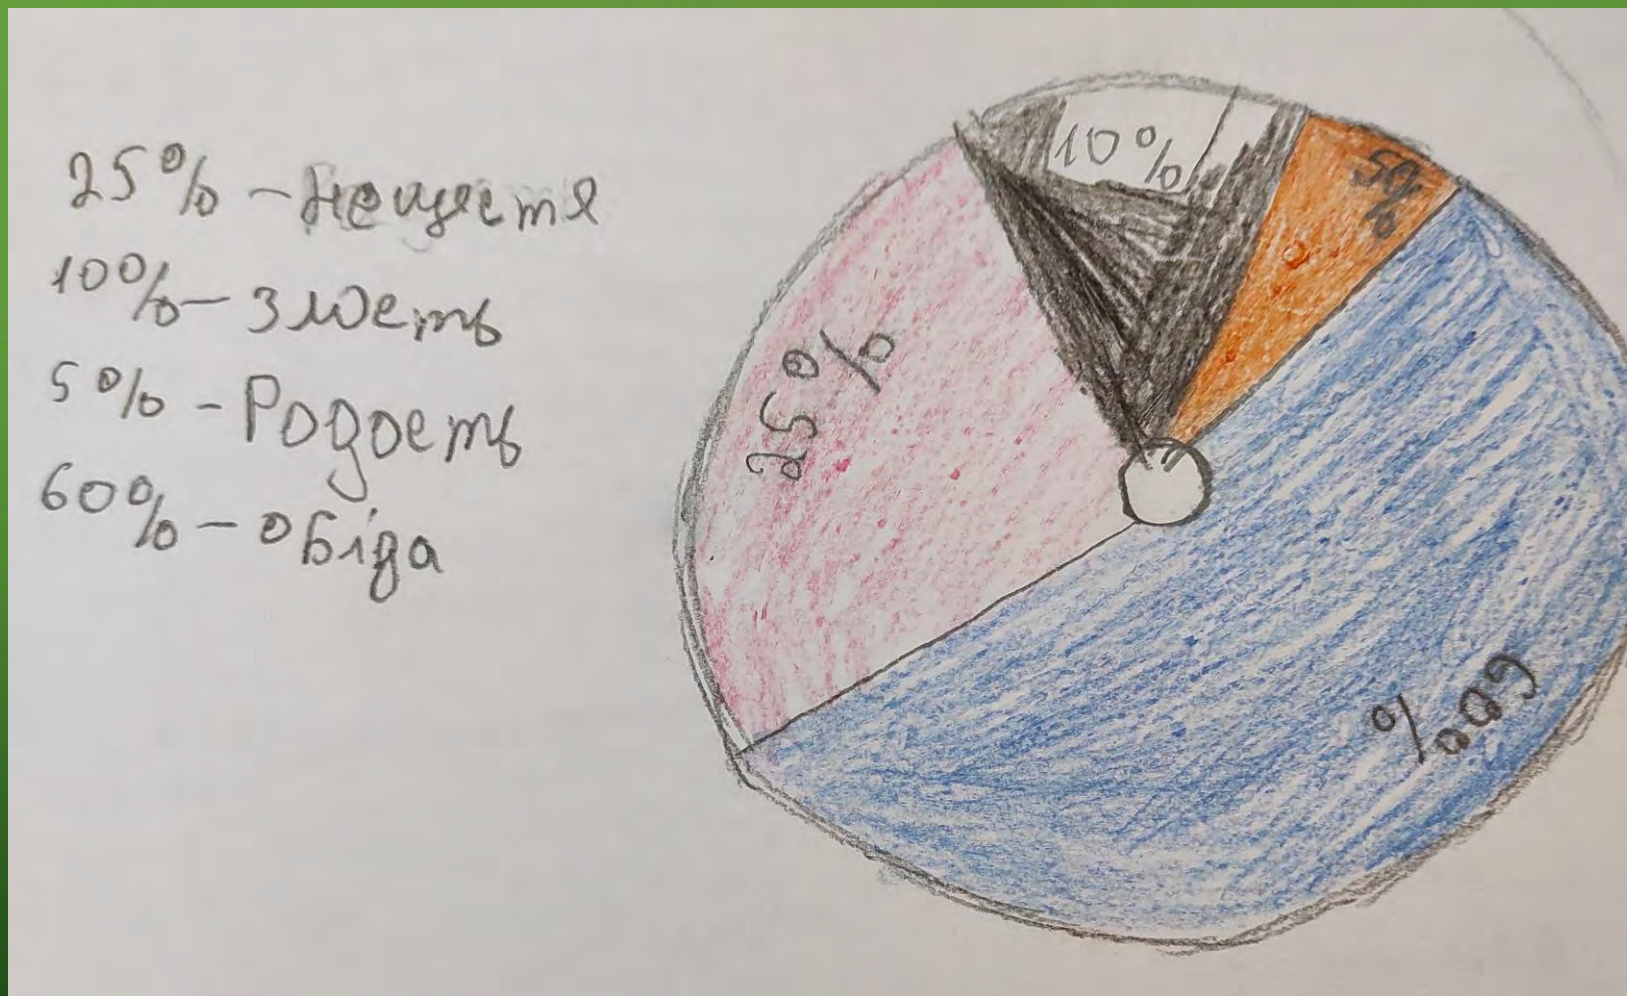 25% - Нещястя
10% - Злость
5% - Родость
60% - обіда
10%
5%
25%
60%